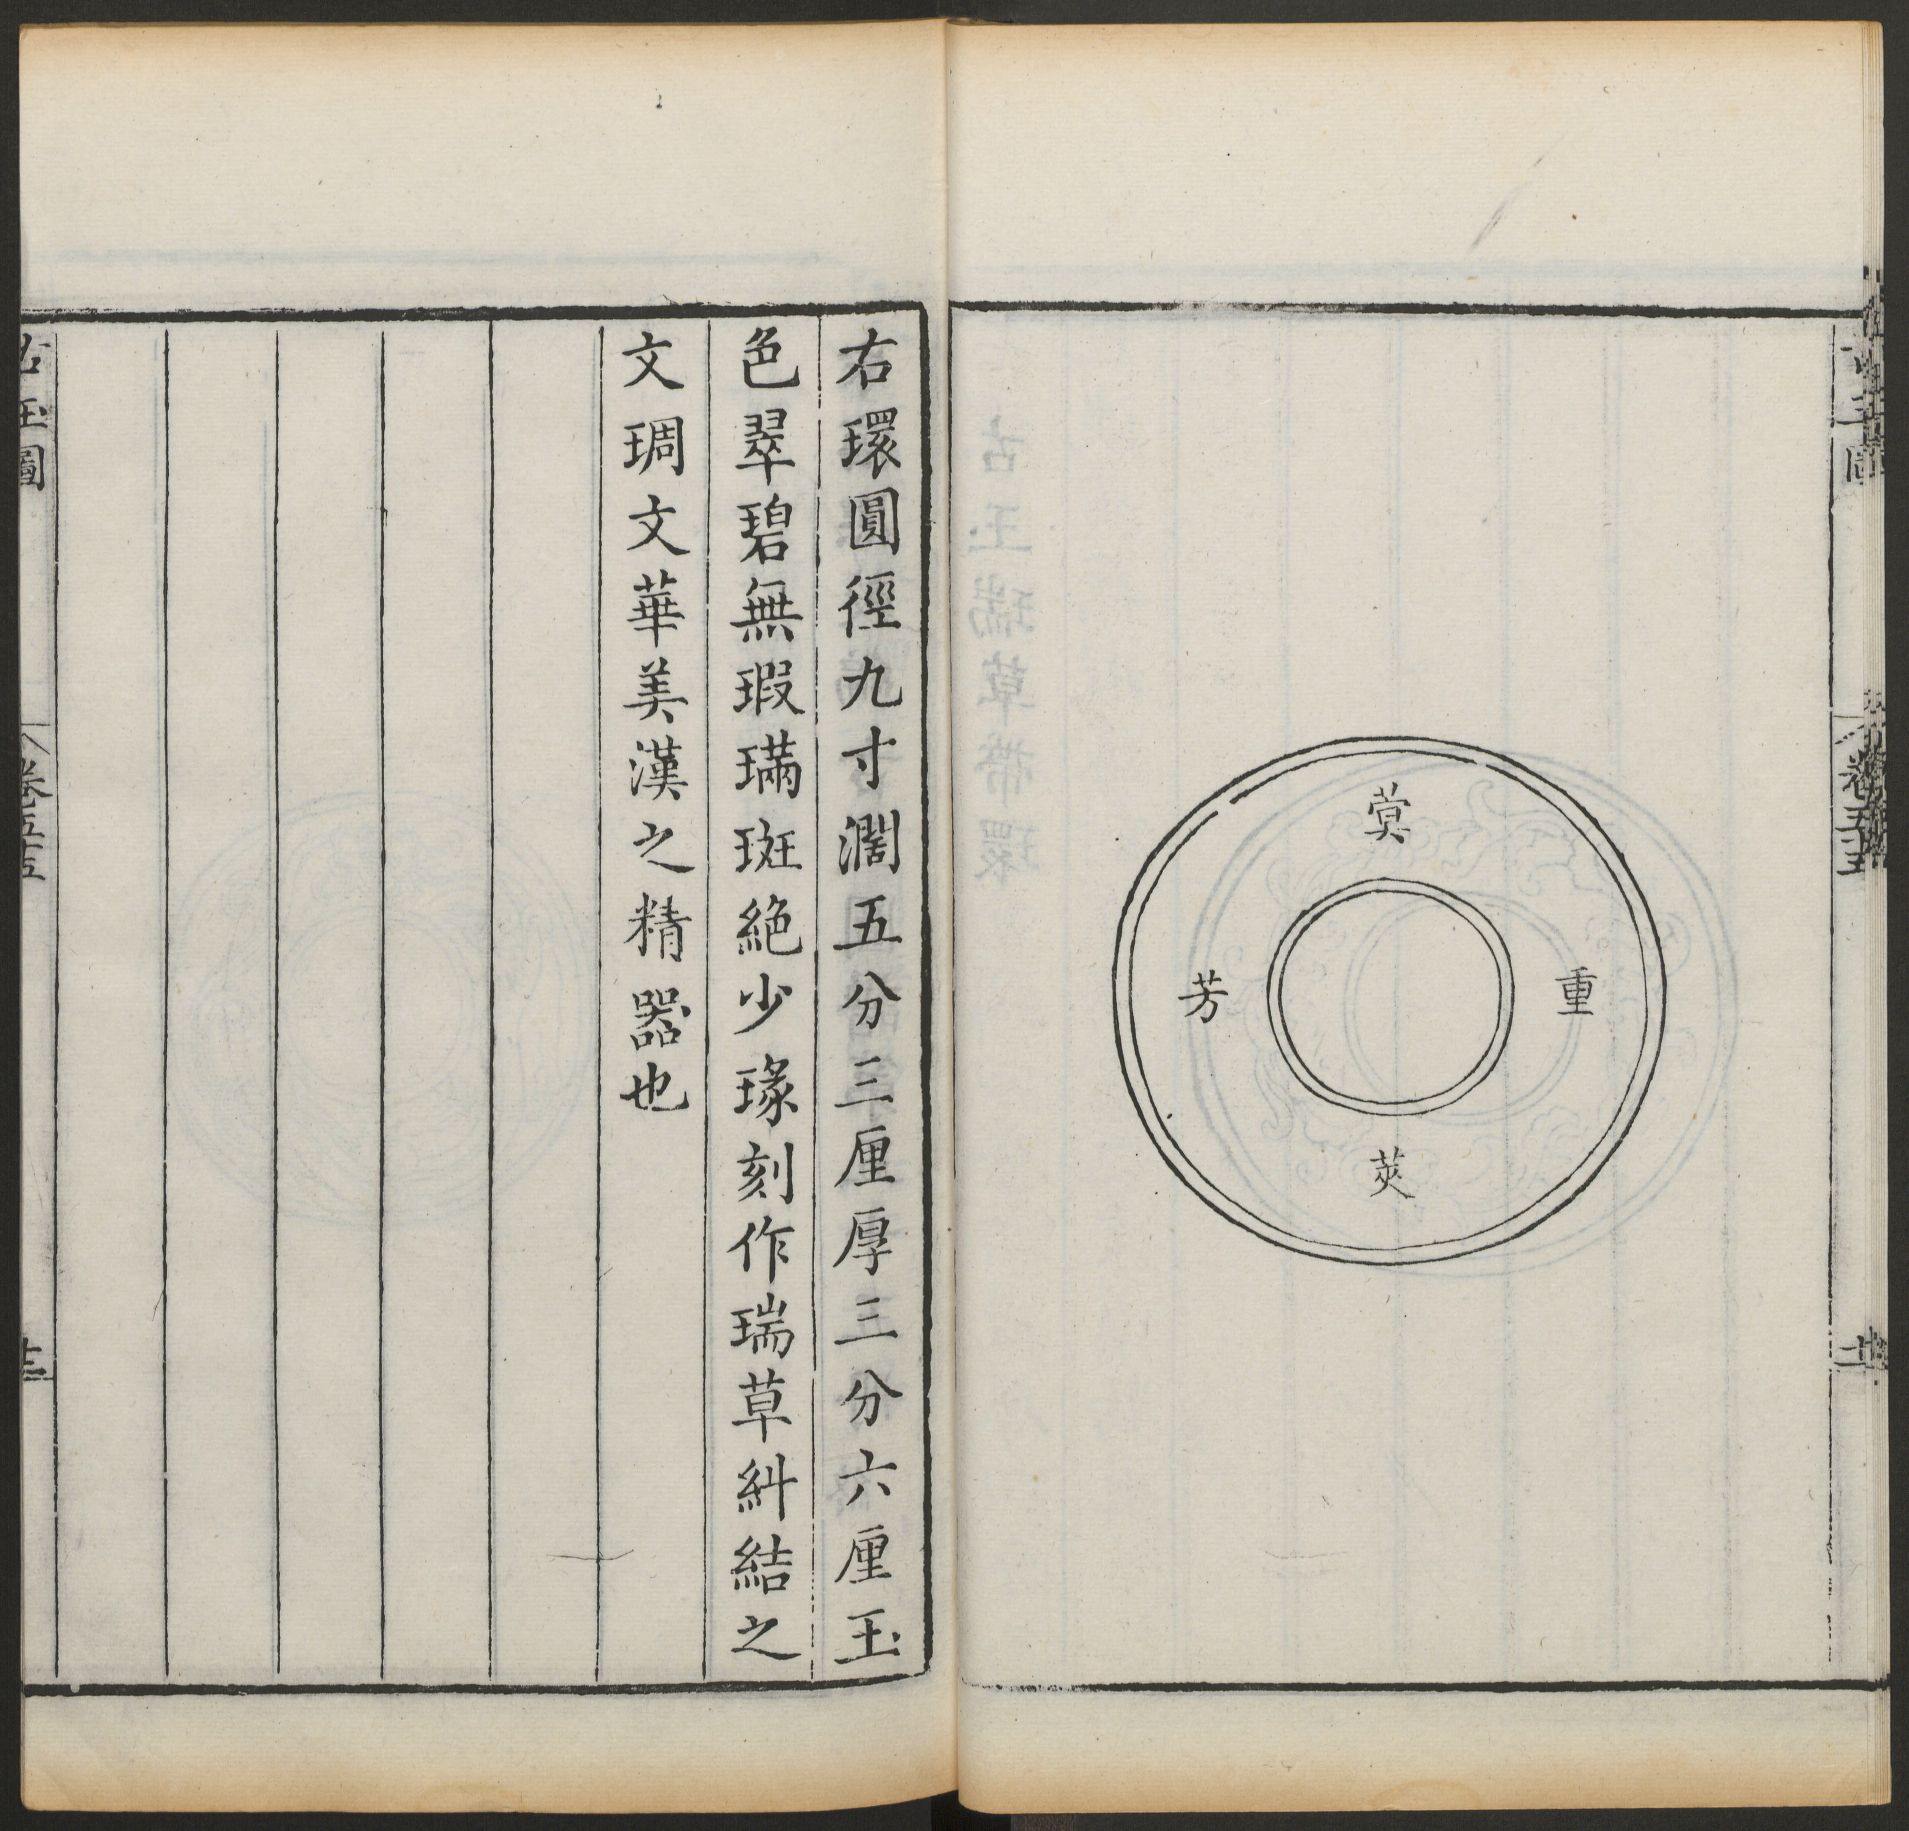 蓂
重
芳
莢
右環圓徑九寸濶五分三厘厚三分六厘玉
色翠碧無瑕璊斑絶少瑑刻作瑞草糾結之
文琱文華美漢之精器也
古玉圖
卷五十五